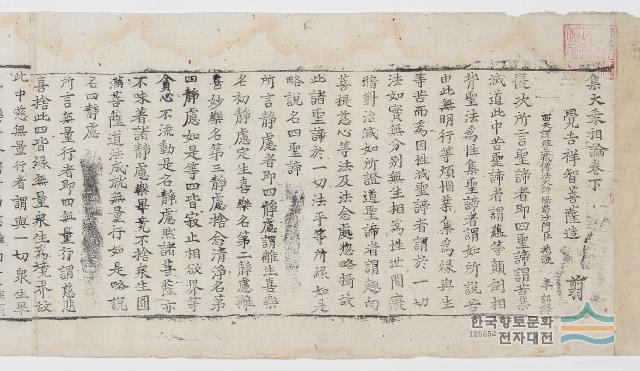 集大乘相論卷下
覺吉祥智菩薩造
復次所言聖諦者即四聖諦謂苦集
滅道此中苦聖諦者謂蘊等顛倒相
背聖法為性集聖諦者謂如所說苦
由此無明行等煩惱業集為緣與生
等苦而為因性滅聖諦者謂於一切
法如實無分別無生相為性世間癡
暗對治滅如所證道聖諦者謂趣向
菩提意心等法及法念處惣略攝故
此諸聖諦於一切法平等所緣如是
略說名四聖諦
所言靜慮者即四靜慮謂離生喜樂
名初靜慮定生喜樂名第二靜慮離
喜妙樂名第三靜慮捨念清淨名第
四靜慮如是等四皆寂止相欲界等
貪心不流動是名靜慮然諸菩薩亦
不味著諸靜慮樂畢竟不捨衆生圓
滿菩薩道法成就無量行如是略說
名四靜慮
所言無量行者即四無量行謂慈悲
喜捨此四皆緣無量衆生為境界故
此中慈無量行者謂與一切衆生畢
한국향토문화
전자대전